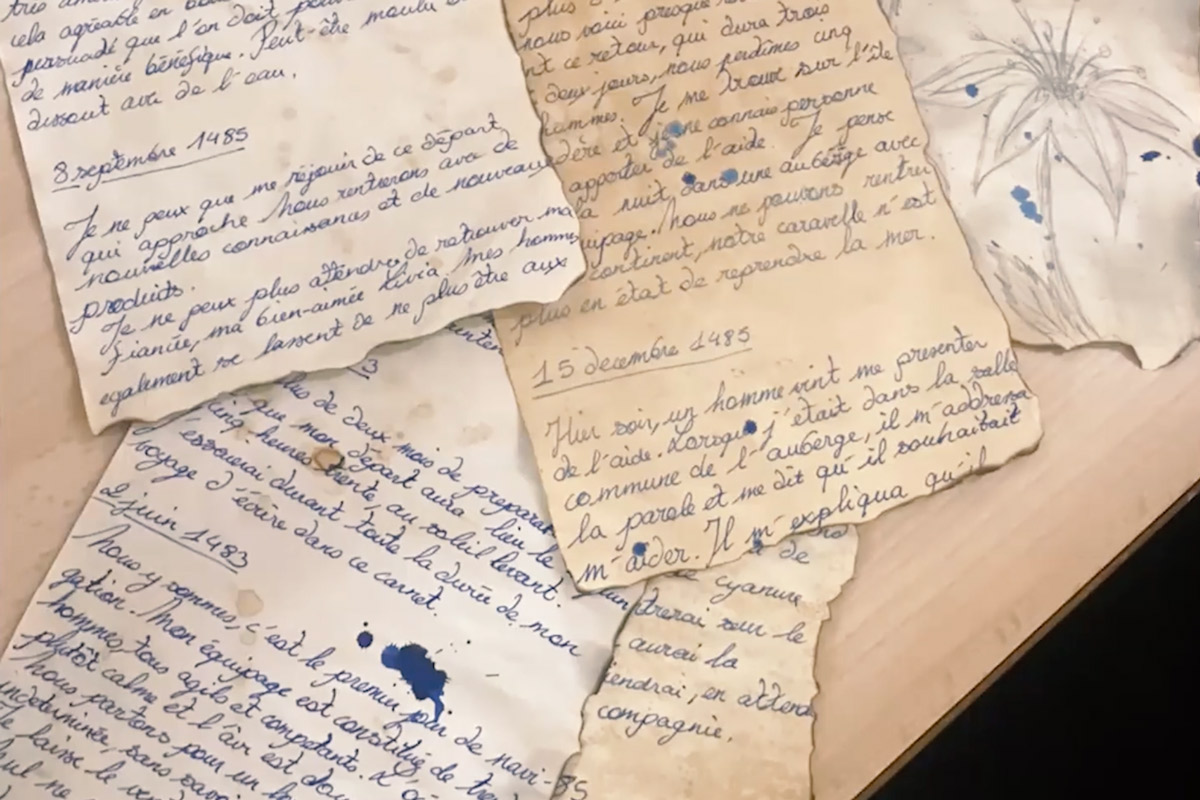 cela agréable en
persuadé que l'on doit
de manière bénéfique. Peut-être moulu
dissout avec de l'eau.
8 septembre 1485
Je ne peux que me réjouir de ce départ
qui approche. Nous rentrerons avec de
nouvelles connaissances et de nouveaux
produits.
Je ne peux plus attendre de retrouver ma
fiancée, ma bien-aimée Livia. Mes hommes
également se lassent de ne plus être aux
plus
nous voici presque
nt ce retour, qui dura trois
deux jours, nous perdîmes cinq
hommes. Je me trouve sur l'île
dère et je ne connais personne
apporter de l'aide. Je pense
la nuit dans une auberge avec
uipage. Nous ne pouvons rentrer
continent, notre caravelle n'est
plus en état de reprendre la mer.
15 décembre 1485
Hier soir, un homme vint me présenter
de l'aide. Lorsque j'était dans la salle
commune de l'auberge, il m'addressa
la parole et me dit qu'il souhaitait
m'aider. Il m'expliqua qu'il
3
plus de deux mois de préparat
que mon départ aura lieu le
cinq heures trente, au soleil levant.
essaierai durant toute la durée de mon
voyage d'écrire dans ce carnet.
2 juin 1483
Nous y sommes, c'est le premier jour de navi-
gation. Mon équipage est constitué de tre
hommes, tous agils et compétants. L'
plutôt calme et l'air est dou
Nous partons pour un
indéterminée, sans savoi
Je laisse le ven
ne
de
cyanure
trerai sur le
aurai la
iendrai, en attend
compagnie.
85